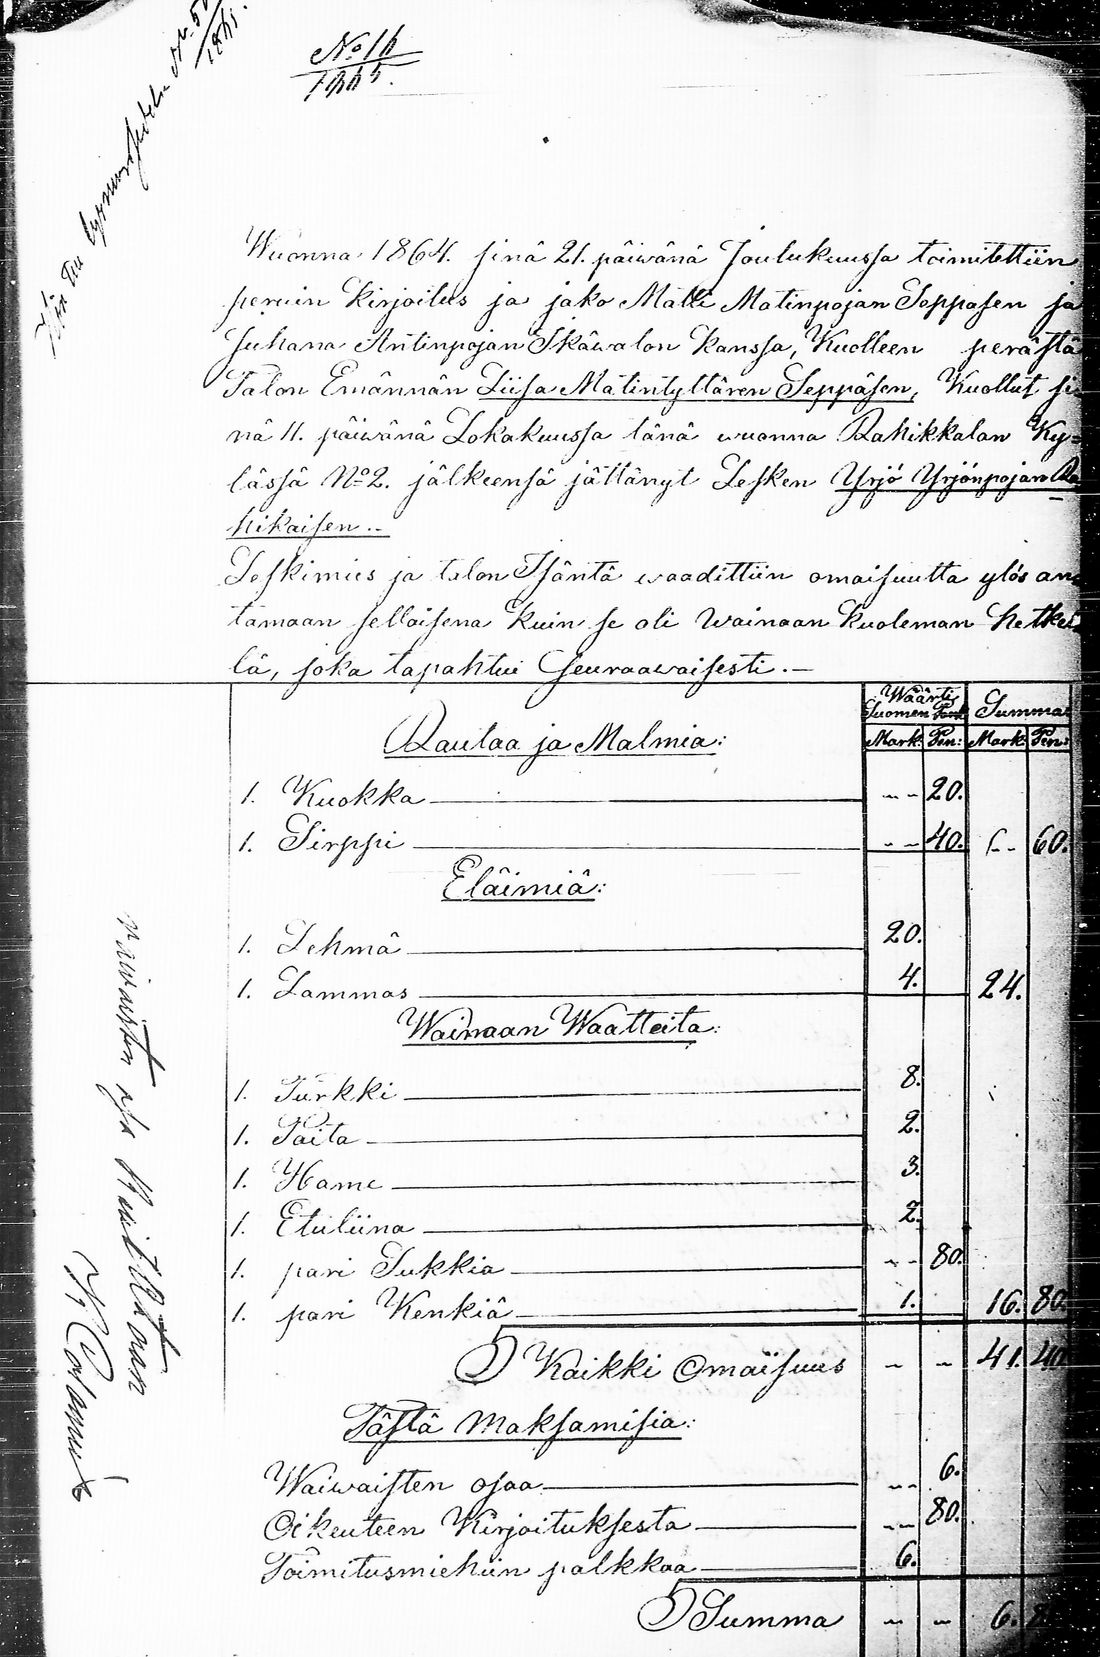 No 16
1865.
Wuonna 1864. sinä 21. päiwänä Joulukuussa toimitettiin
peruin kirjoitus ja jako Matti Matinpojan Seppäsen ja
Juhana Antinpojan Skäwalon kanssa, Kuolleen perästä
Talon Emännän Liisa Matintyttären Seppäsen, Kuollut si=
nä 11. päiwänä Lokakuussa tänä wuonna Rahikkalan Ky=
lässä No 2. jälkeensä jättänyt Lesken Yrjö Yrjönpojan Ra=
hikaisen.–
Leskimies ja talon Isäntä waadittiin omaisuutta ylös an=
tamaan sellaisena kuin se oli Wainaan kuoleman hetkel=
lä, joka tapahtui seuraawaisesti.–
Wäärti Suomen Summa:
Mark: Pen: Mark: Pen:
Rautaa ja Malmia:
1. Kuokka – – 20.
1. Sirppi – – 40. – – 60.
Eläimiä:
1. Lehmä 20.
1. Lammas 4. 24.
Wainaan Waatteita:
1. Turkki 8.
1. Paita 2.
1. Hame 3.
1. Etuliina 2.
1. pari Sukkia – – 80.
1. pari Kenkiä 1. 16. 80.
Kaikki Omaisuus – – 41. 40
Tästä Maksamisia:
Waiwaisten osaa – – 6.
Oikeuteen Kirjoituksesta – – 80.
Toimitusmiehiin palkkaa 6.
Summa – – 6.